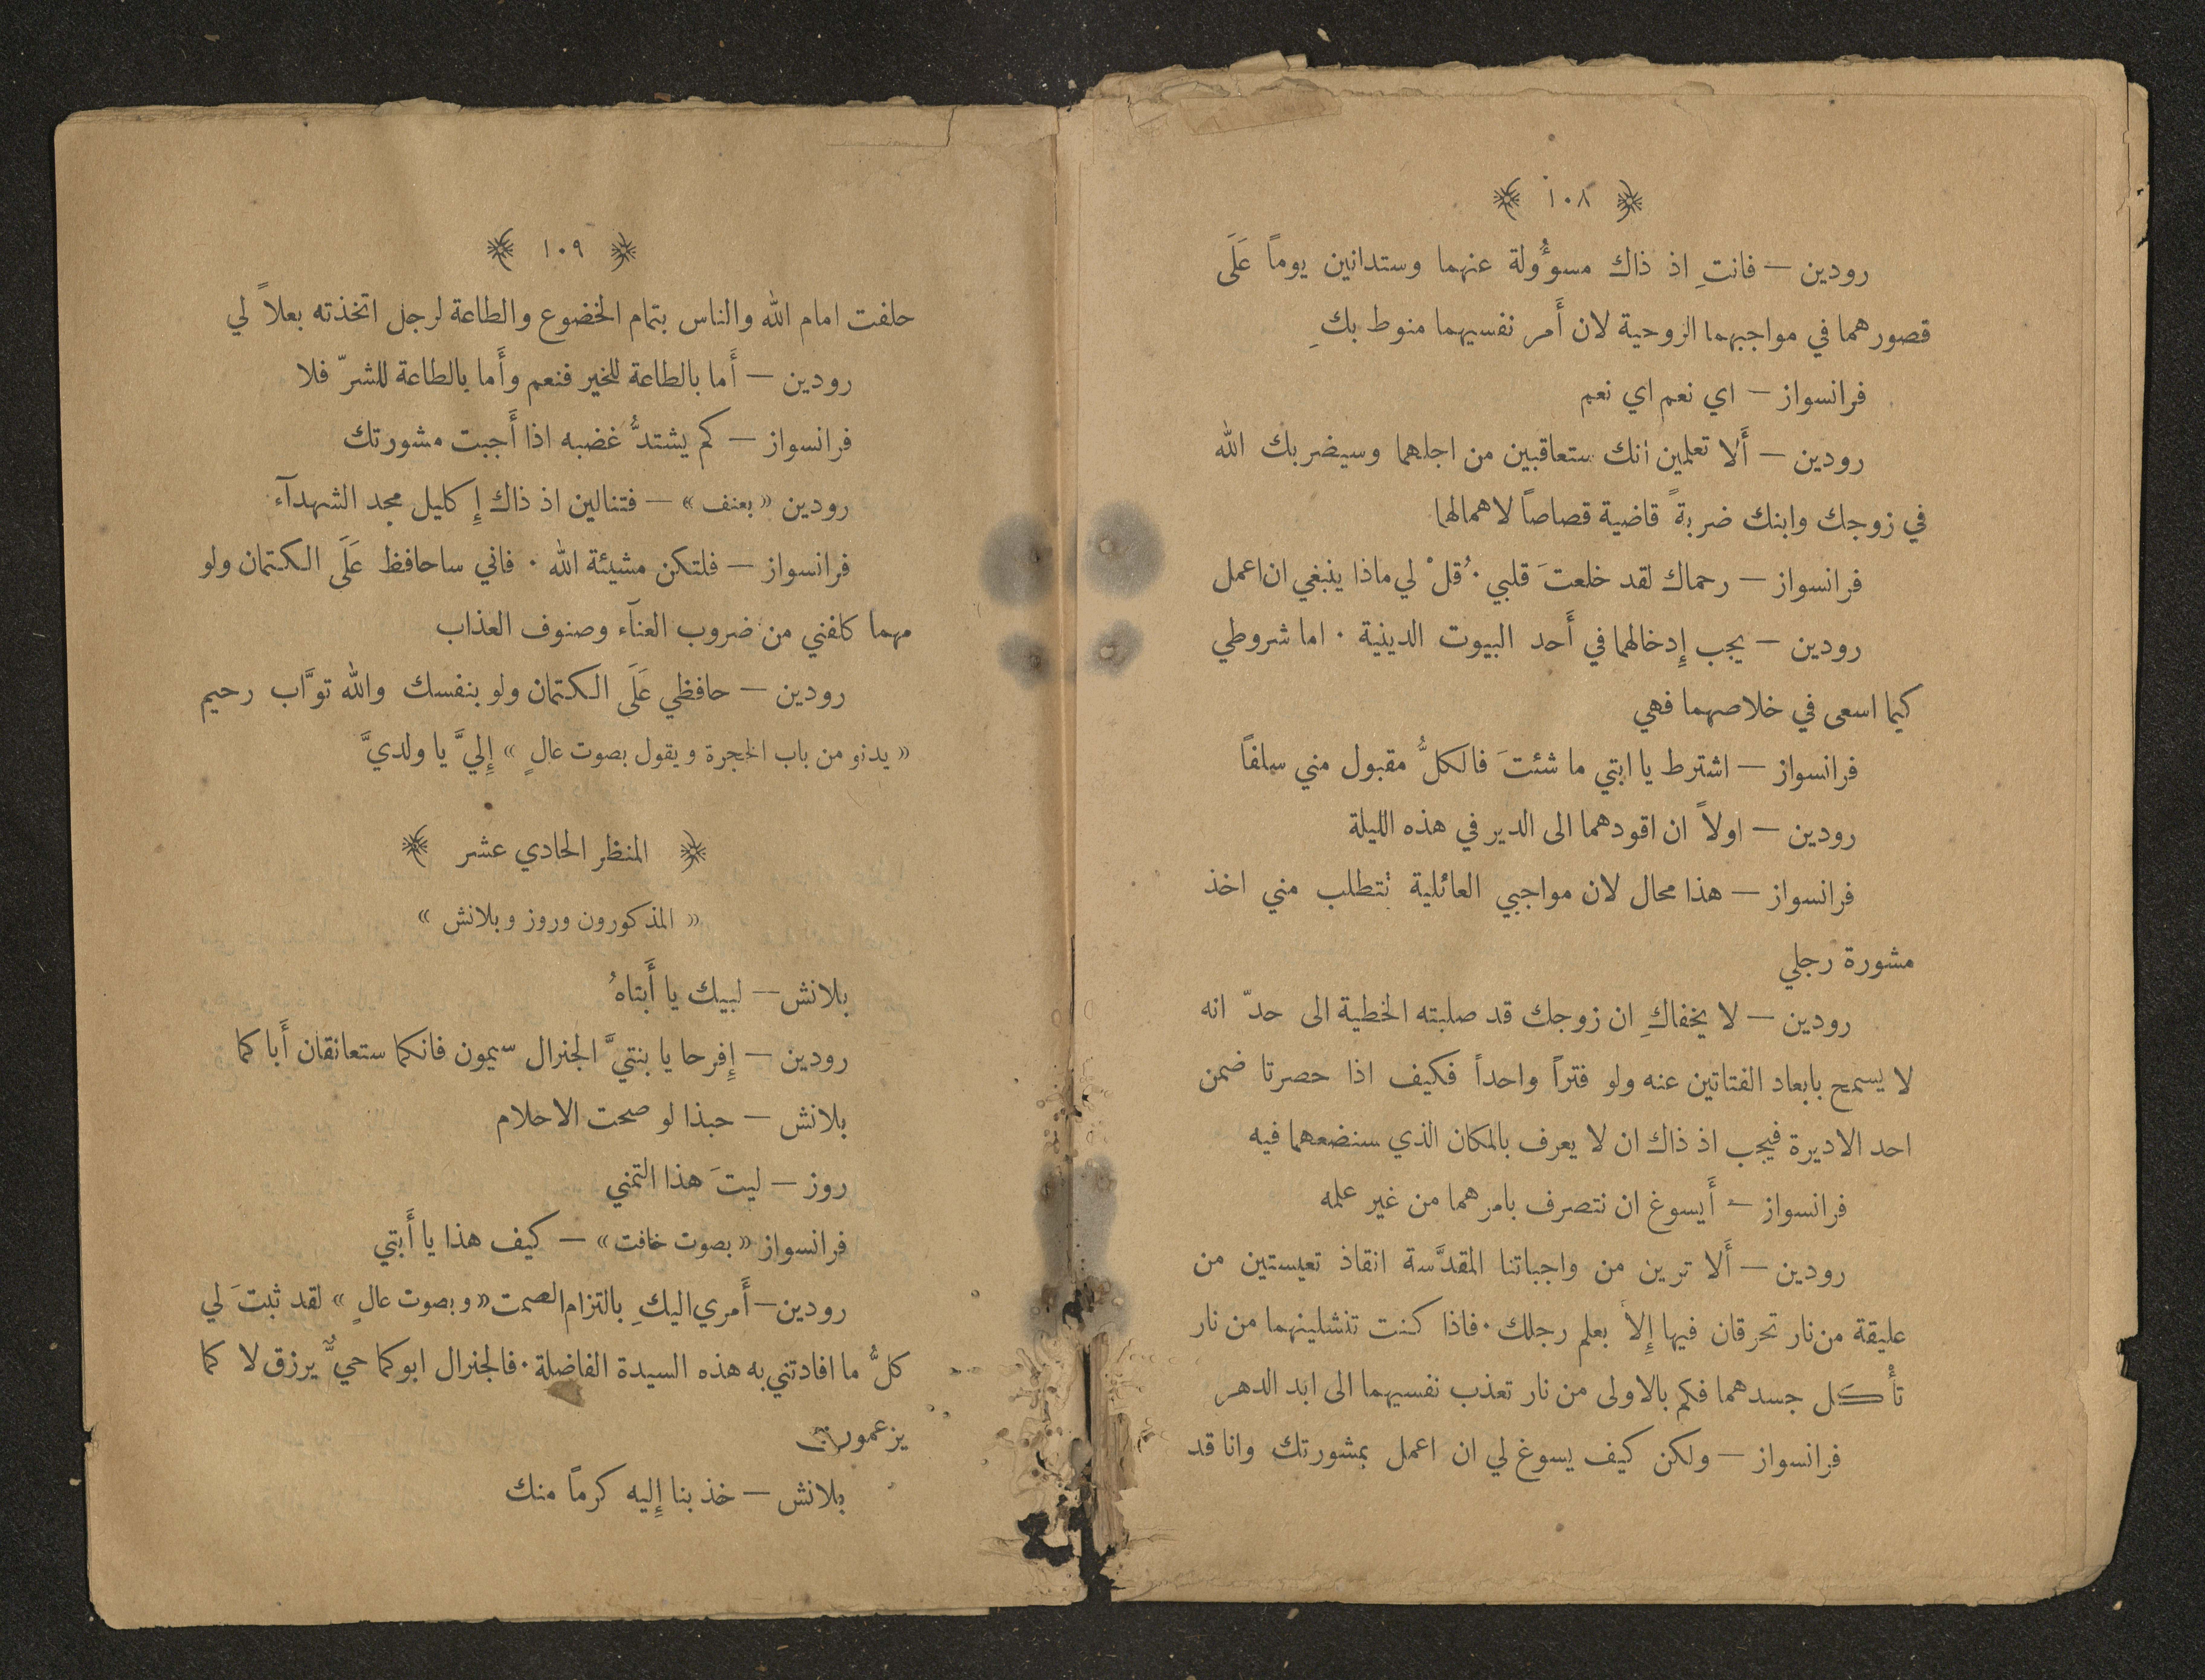 ﴿ ١٠٨ ﴾
رودين — فانتِ اذ ذاك مسوءُولة عنهما وستدانين يوماً عَلَى
قصورهما في مواجبهما الروحية لان أَمر نفسيهما منوط بكِ
فرانسواز — اي نعم اي نعم
رودين — أَلا تعلمين انك ستعاقبين من اجلهما وسيضربك الله
في زوجك وابنك ضربةً قاضية قصاصاً لاهمالهما
فرانسواز — رحماك لقد خلعتَ قلبي ٠ قُلْ لي ماذا ينبغي ان اعمل
رودين — يجب إِدخالهما في أَحد البيوت الدينية ٠ اما شروطي
كيما اسعى في خلاصهما فهي
فرانسواز — اشترط يا ابتي ما شئتَ فالكلُّ مقبول مني سلفاً
رودين — اولاً ان اقودهما الى الدير في هذه الليلة
فرانسواز — هذا محال لان مواجبي العائلية تتطلب مني اخذ
مشورة رجلي
رودين — لا يخفاكِ ان زوجك قد صلبته الخطية الى حدّ انه
لا يسمح بابعاد الفتاتين عنه ولو فتراً واحداً فكيف اذا حصرتا ضمن
احد الاديرة فيجب اذ ذاك ان لا يعرف بالمكان الذي سنضعهما فيه
فرانسواز — أَيسوغ ان نتصرف بامرهما من غير علمه
رودين — أَلا ترين من واجباتنا المقدَّسة انقاذ تعيستين من
عليقة من نار تحرقان فيها إِلاَّ بعلم رجلك ٠ فاذا كنت تنشلينهما من نار
تأْكل جسدهما فكم بالاولى من نار تعذب نفسيهما الى ابد الدهر
فرانسواز — ولكن كيف يسوغ لي ان اعمل بمشورتك وانا قد
﴿ ١٠٩ ﴾
حلفت امام الله والناس بتمام الخضوع والطاعة لرجل اتخذته بعلاً لي
رودين — أَما بالطاعة للخير فنعم وأَما بالطاعة للشرّ فلا
فرانسواز — كم يشتدُّ غضبه اذا أَجبت مشورتك
رودين « بعنف » — فتنالين اذ ذاك إِكليل مجد الشهدآء
فرانسواز — فلتكن مشيئة الله ٠ فاني ساحافظ عَلَى الكتمان ولو
مهما كلفني من ضروب العنآء وصنوف العذاب
رودين — حافظي عَلَى الكتمان ولو بنفسك والله توَّاب رحيم
« يدنو من باب الحجرة ويقول بصوت عالٍ » إِليَّ يا ولديَّ
﴿ المنظر الحادي عشر ﴾
« المذكورون وروز وبلانش »
بلانش — لبيك يا أَبتاهُ
رودين — إِفرحا يا بنتيَّ الجنرال سيمون فانكما ستعانقان أَباكما
بلانش — حبذا لو صحت الاحلام
روز — ليتَ هذا التمني
فرانسواز « بصوت خافت » — كيف هذا يا أَبتي
رودين — أَمري اليكِ بالتزام الصمت « وبصوت عالٍ » لقد ثبتَ لي
كلُّ ما افادتني به هذه السيدة الفاضلة ٠ فالجنرال ابوكما حيٌّ يرزق لا كما
يزعمون
بلانش — خذ بنا إِليه كرماً منك